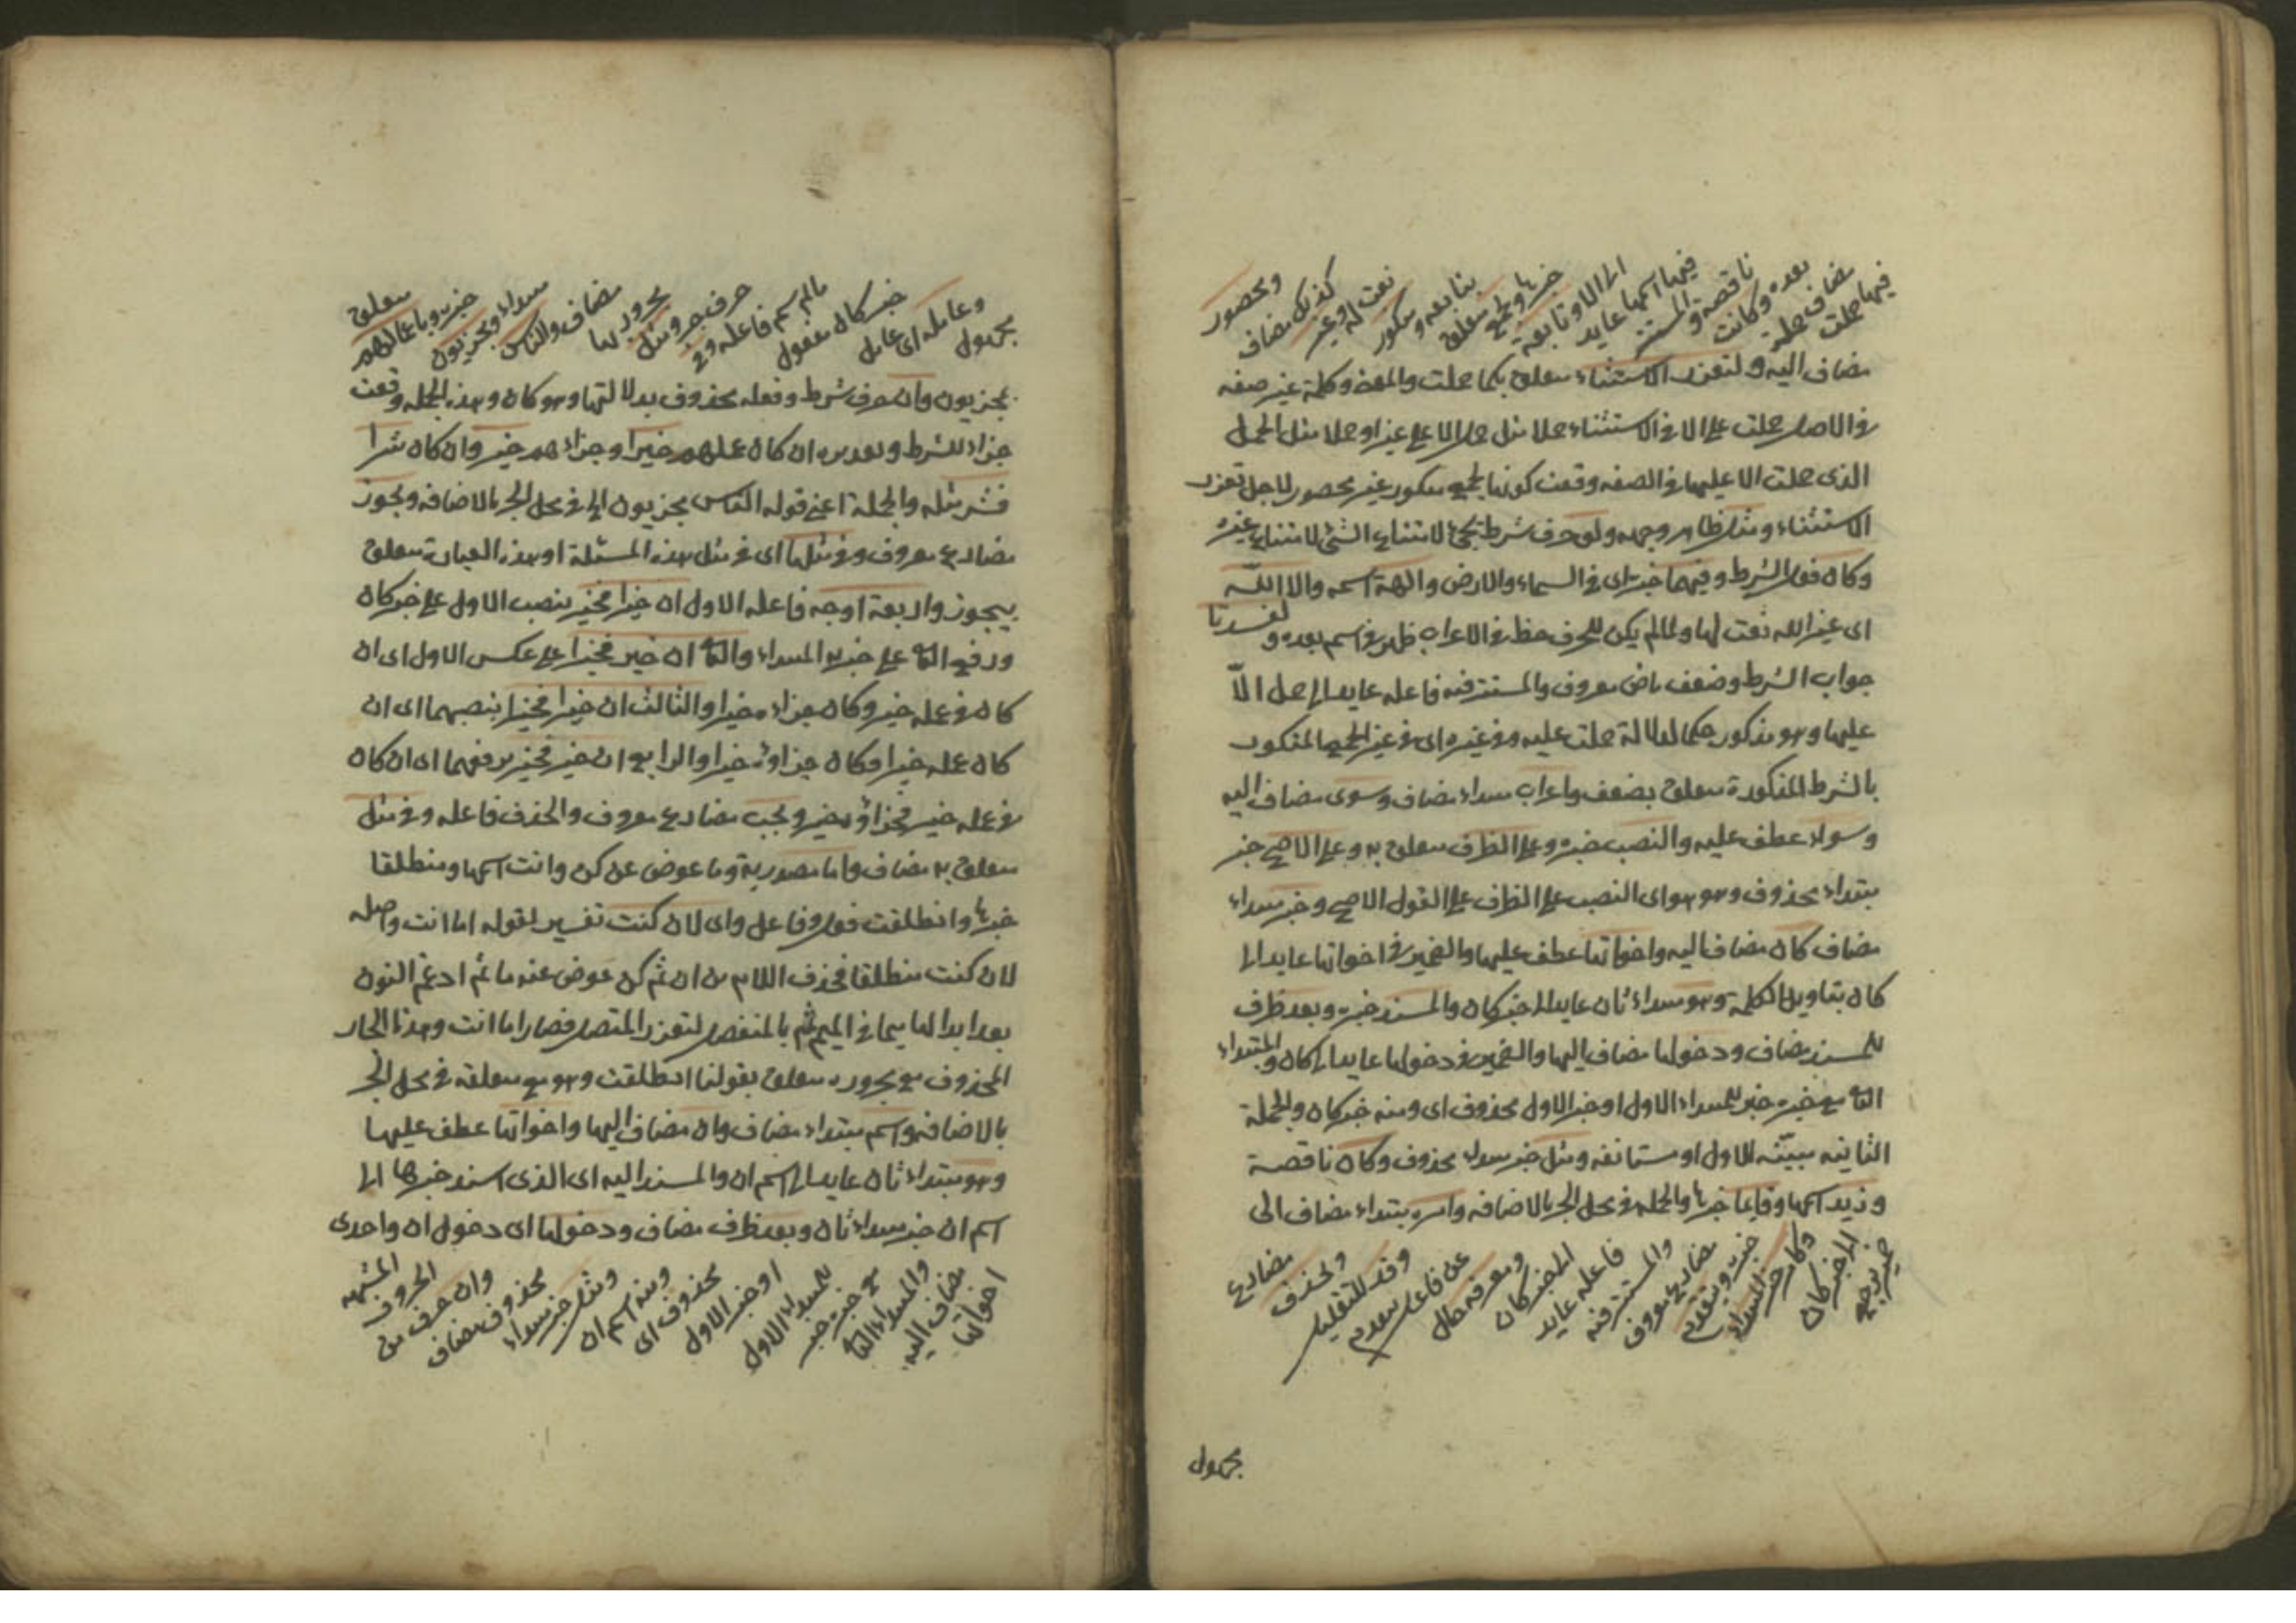 فيها حملت
مضاف حملة
بعده وكانت
ناقصة والمستتر
فيها اسمها عايد
الى الا وتابعة
خبرها ولجمع متعلق
بتابعة ومنكور
نعت له وغير
كذلك مضاف
ومحصور
مضاف اليه ولتعذر الاستثناء متعلق بكما حملت والمعنى وكلمة غير صفة
فى الاصل حملت على الا فى الاستثناء حملا مثل حمل الا على غير او حملا مثل الحمل
الذى حملت الا عليها فى الصفه وقعت كونها لجمع منكور غير محصور لاجل تعذر
الاستثناء ومثل ظاهر وجهه ولو حرف شرط تجئ لامتناع الشئ لامتناع غيره
وكان فعل الشرط وفيهما خبره اى فى السماء والارض والهة اسمه والا الله
اى غير الله نعت لها ولما لم يكن للحرف حظ فى الاعراب ظهر فى اسم بعده ولفسدتا
جواب الشرط وضعف ماض معروف والمستتر فيه فاعله عايد الى حمل الاّ
عليها وهو مذكور حكما لدلالة حملت عليه وفى غيره اى فى غير الجمع المنكور
بالشرط المذكورة متعلق بضعف واعراب مبتداء مضاف وسوى مضاف اليه
وسواء عطف عليه والنصب خبره وعلى الظرف متعلق به وعلى الاصح خبر
مبتداء محذوف وهو هو اى النصب على الظرف على القول الاصح وخبر مبتداء
مضاف كان مضاف اليه واخواتها عطف عليها والضمير فى اخواتها عايد الى
كان بتاويل الكلمة وهو مبتداء ثان عايد الى خبر كان والمسند خبره وبعد ظرف
للمسند مضاف ودخولها مضاف اليها والضمير فى دخولها عايد الى كان والمبتداء
الثانى مع خبره خبر للمبتداء الاول او خبر الاول محذوف اى ومنه خبر كان والجملة
الثانيه مبيّنه للاول او مستانفه ومثل خبر مبتداء محذوف وكان ناقصة
وزيد اسمها وقايما خبرها والجمله فى محل الجر بالاضافه وامره مبتداء مضاف الى
ضمير يرجع
الى خبر كان
وكامر خبر المبتداء
خبره ويتقدم
مضارع معروف
والمستتر فيه
فاعله عايد
الى خبر كان
ومعرفه حال
عن فاعل يتقدم
وقد للتقليل
ويحذف
مضارع
مجهول
مجهول
وعامله اى عامل
خبر كان مفعول
مالم يسم فاعله وفى
حرف جر ومثل
مجرور بها
مضاف والناس
مبتداء ومجزيون
خبره وباعمالهم
متعلق
بمجزيون وان حرف شرط وفعله محذوف بدلالتها وهو كان وهذه الجمله وقعت
جزاء للشرط وتقديره ان كان عملهم خيرا فجزاءهم خير وان كان شرا
فشر مثله والجملة اعنى قوله الناس مجزيون الى فى محل الجر بالاضافه ويجوز
مضارع معروف وفى مثلها اى فى مثل هذه المسئلة او هذه العبارة متعلق
بيجوز واربعة اوجه فاعله الاول ان خيرا فخير بنصب الاول على خبر كان
ورفع الثانى على خبرية المبتداء والثانى ان خير فخيرا على عكس الاول اى ان
كان فى عمله خير وكان جزاءه خيرا والثالث ان خيرا فخيرا بنصبهما اى ان
كان عمله خيرا فكان جزاؤه خيرا والرابع ان خير فخير برفعهما اى ان كان
فى عمله خير فجزاؤه خير ويجب مضارع معروف والحذف فاعله وفى مثل
متعلق به مضاف واما مصدرية وما عوض عن كن وانت اسمها ومنطلقا
خبرها وانطلقت فعل وفاعل واى لان كنت تفسير لقوله اما انت واصله
لان كنت منطلقا فحذف اللام من ان ثم كن عوض عنه ما ثم ادغم النون
بعد ابدالها ميما فى الميم ثم بالمنفصل لتعذر المتصل فصار اما انت وهذا الجار
المحذوف مع مجروره متعلق بقولنا انطلقت وهو مع متعلقه فى محل الجر
بالاضافه واسم مبتداء مضاف وان مضاف اليها واخواتها عطف عليها
وهو مبتداء ثان عايد الى اسم ان والمسند اليه اى الذى اسند خبرها الى
اسم ان خبر مبتداء ثان وبعد ظرف مضاف ودخولها اى دخول ان واحدى
اخواتها
مضاف اليه
والمبتداء الثانى
مع خبره خبر
للمبتداء الاول
او خبر الاول
محذوف اى
ومنه اسم ان
ومثل خبر مبتداء
محذوف مضاف
وان حرف من
الحروف
المشبهه